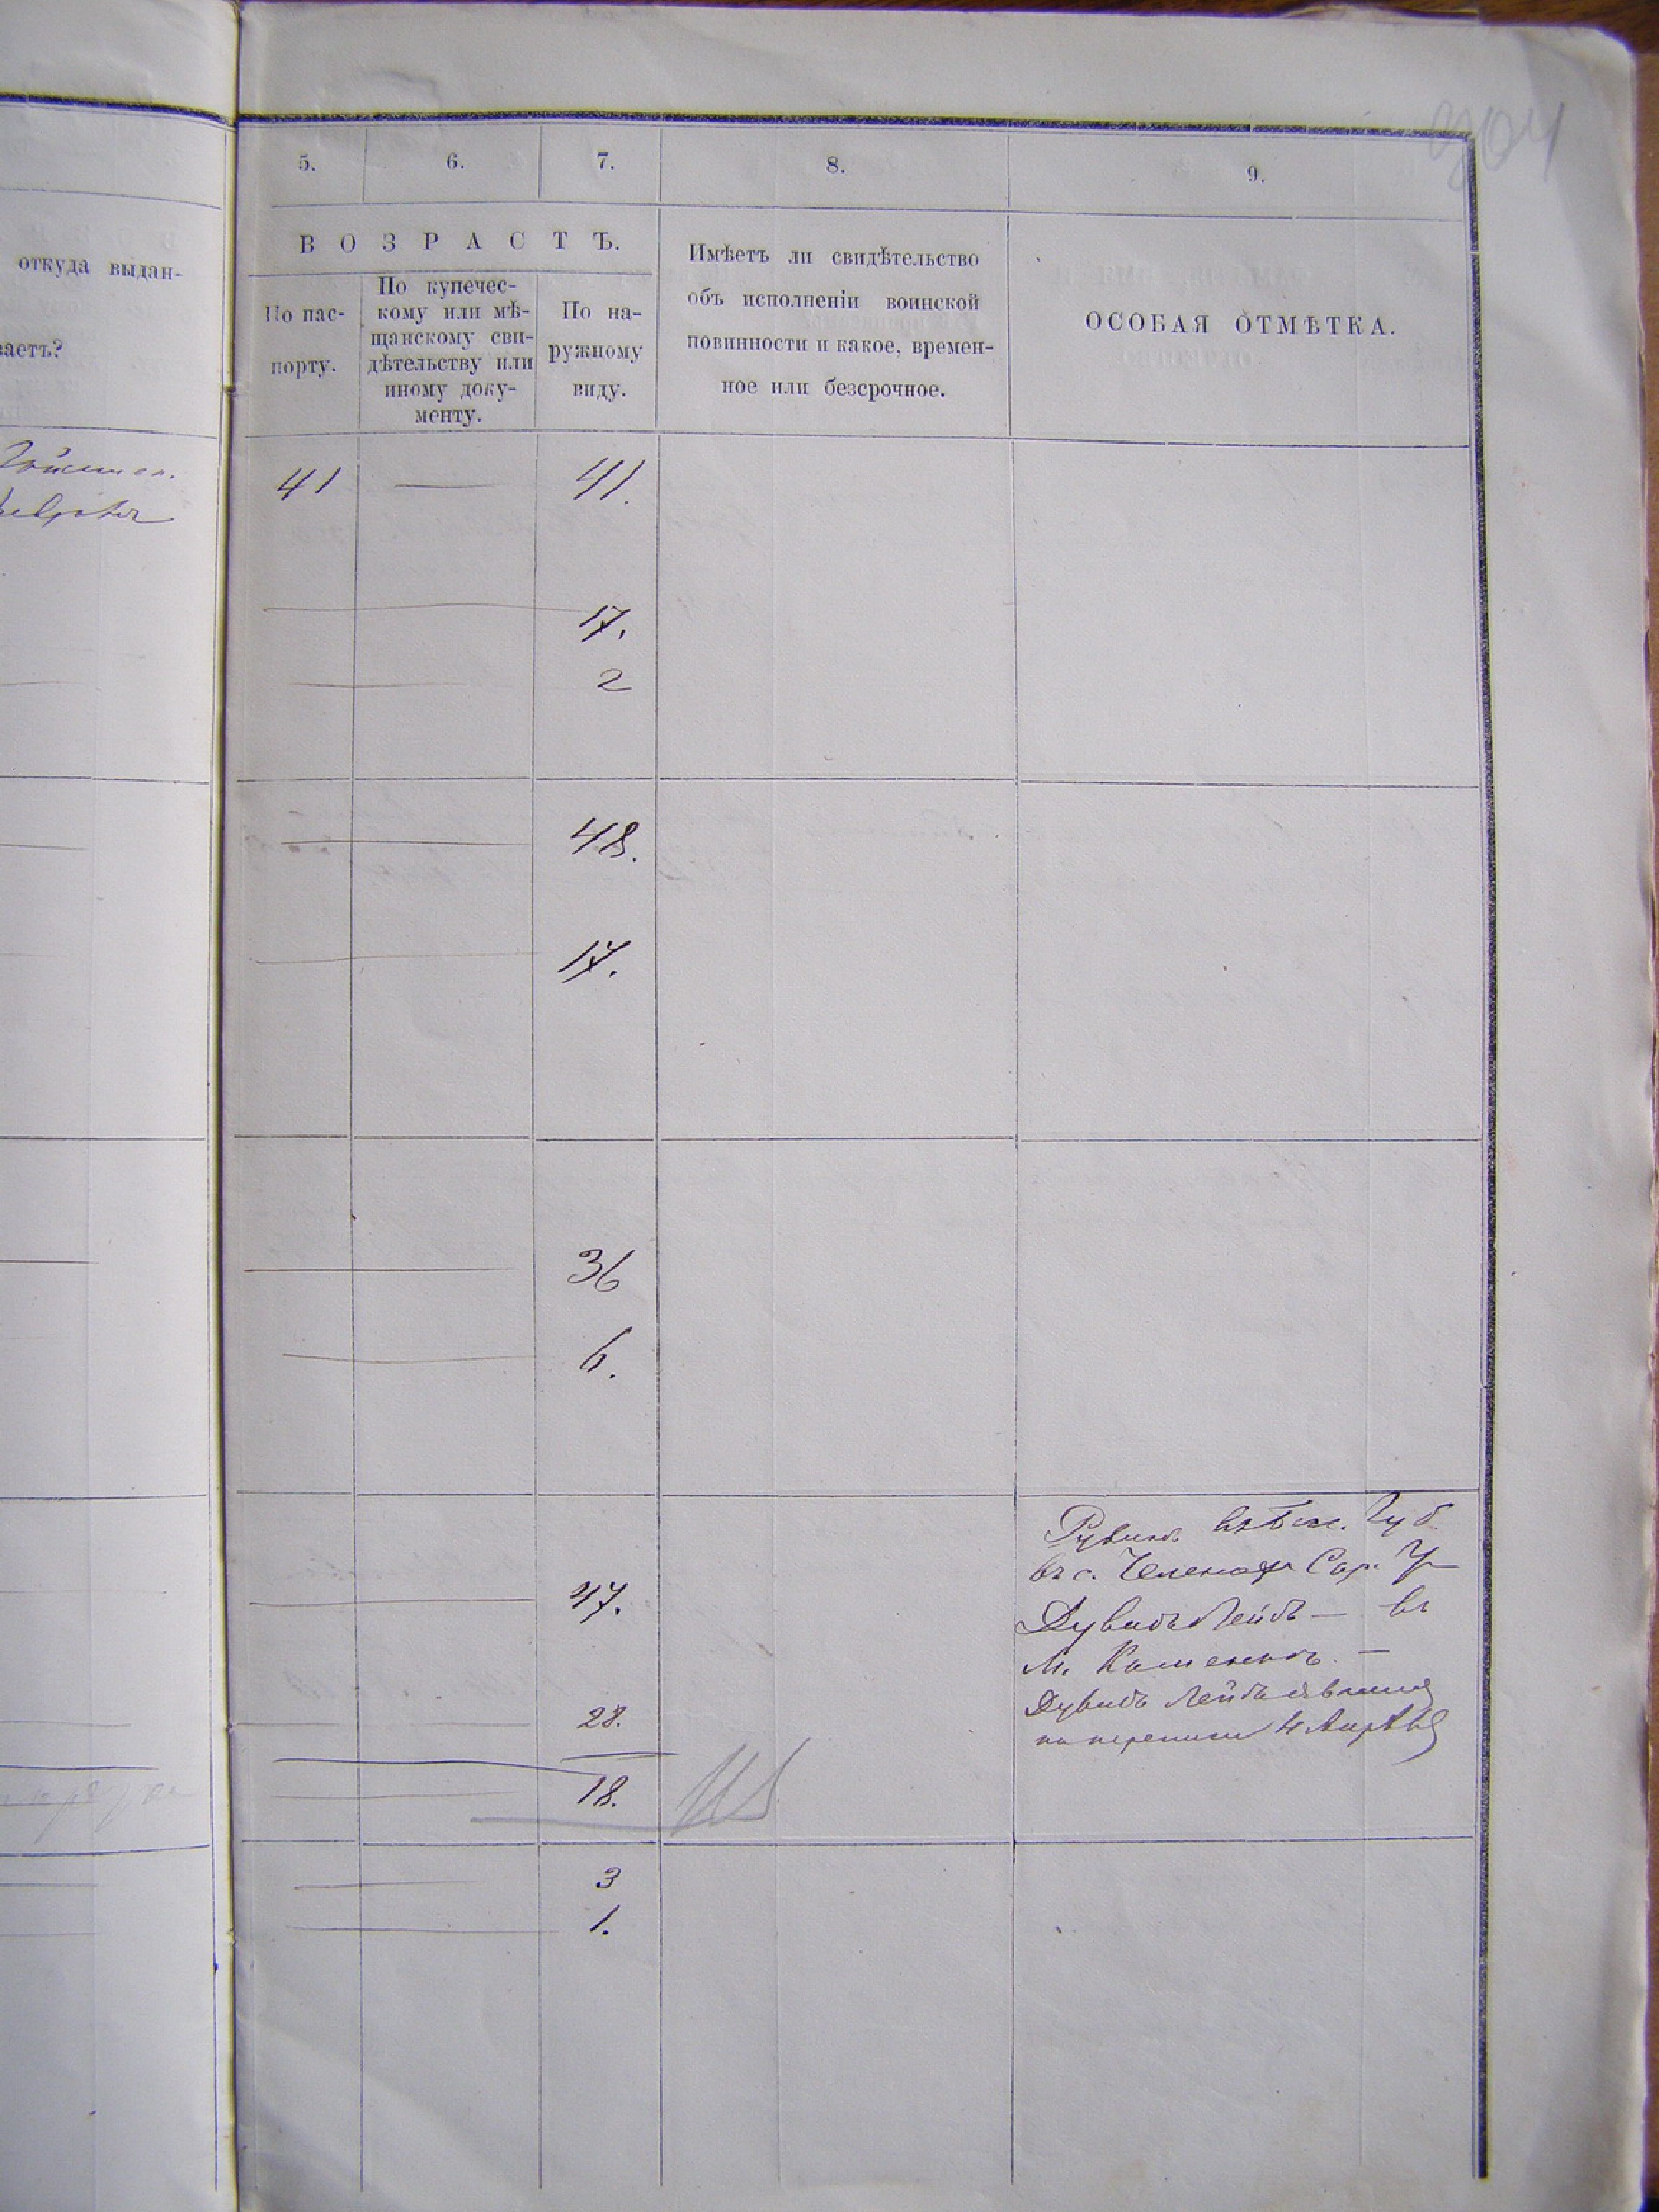 904
5. 6. 7. 8. 9.
откуда выдан-
ваетъ?
ВОЗРАСТЪ.
По пас-
порту.
По купечес-
кому или мѣ-
щанскому сви-
дѣтельству или
иному доку-
менту.
По на-
ружному
виду.
Имѣетъ ли свидѣтельство
объ исполненіи воинской
повинности и какое, времен-
ное или безсрочное.
ОСОБАЯ ОТМѢТКА.
41 — 41.
17.
2
48.
17.
36
6.
47.
28.
18.
3
1.
Рувинъ Губ.
въ с. Сор. У
Дувидъ Лейбъ — въ
м. Каменкѣ —
Дувидъ Лейбъ
4 Апрѣля